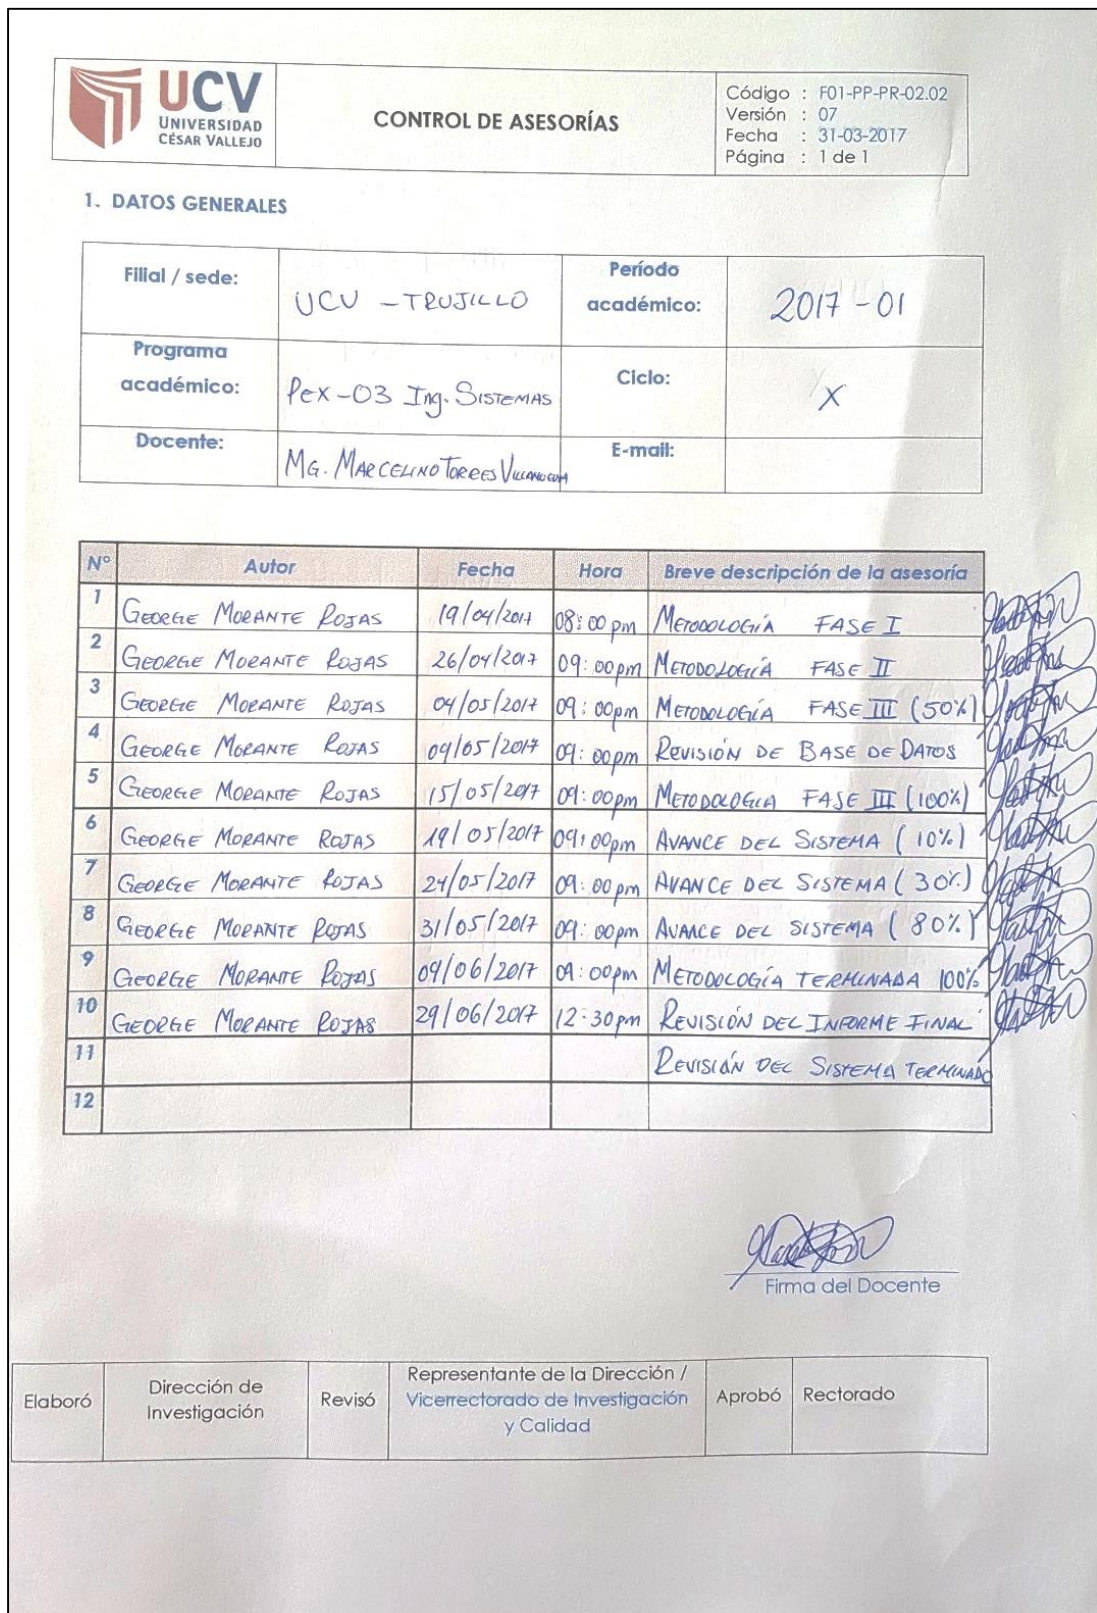 UCV
UNIVERSIDAD
CÉSAR VALLEJO
CONTROL DE ASESORÍAS
Código : F01-PP-PR-02.02
Versión : 07
Fecha : 31-03-2017
Página : 1 de 1
1. DATOS GENERALES
Filial / sede: UCV - TRUJILLO Período académico: 2017 - 01
Programa académico: Pex-03 Ing. SISTEMAS Ciclo: X
Docente: MG. MARCELINO TORRES E-mail:
N° Autor Fecha Hora Breve descripción de la asesoría
1 GEORGE MORANTE ROJAS 19/04/2017 08:00 pm METODOLOGÍA FASE I
2 GEORGE MORANTE ROJAS 26/04/2017 09:00pm METODOLOGÍA FASE II
3 GEORGE MORANTE ROJAS 04/05/2017 09:00pm METODOLOGÍA FASE III (50%)
4 GEORGE MORANTE ROJAS 09/05/2017 09:00pm REVISIÓN DE BASE DE DATOS
5 GEORGE MORANTE ROJAS 15/05/2017 09:00pm METODOLOGIA FASE III (100%)
6 GEORGE MORANTE ROJAS 19/05/2017 09:00pm AVANCE DEL SISTEMA (10%)
7 GEORGE MORANTE ROJAS 24/05/2017 09:00pm AVANCE DEL SISTEMA (30%)
8 GEORGE MORANTE ROJAS 31/05/2017 09:00pm AVANCE DEL SISTEMA (80%)
9 GEORGE MORANTE ROJAS 09/06/2017 09:00pm METODOLOGÍA TERMINADA 100%
10 GEORGE MORANTE ROJAS 29/06/2017 12:30pm REVISIÓN DEL INFORME FINAL
11 REVISIÓN DEL SISTEMA TERMINADO
12
Firma del Docente
Elaboró Dirección de Investigación Revisó Representante de la Dirección / Vicerrectorado de Investigación y Calidad Aprobó Rectorado